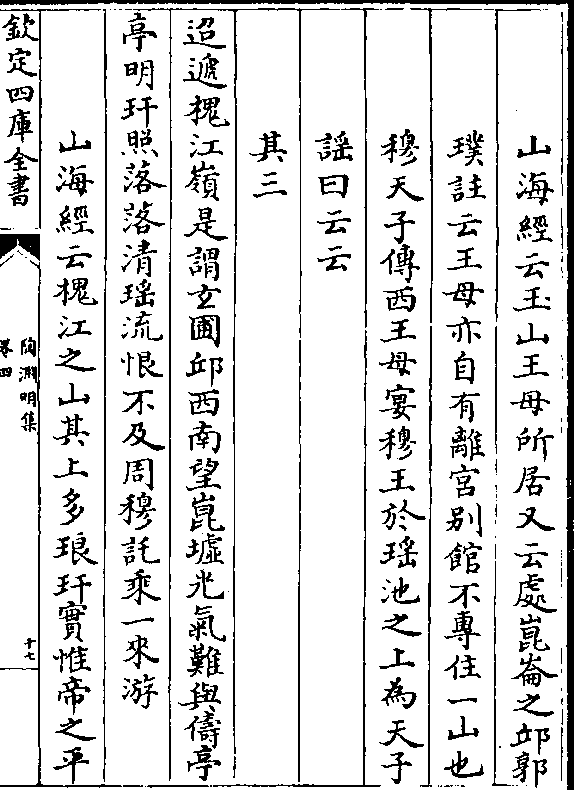 山海經云玉山王母所居又云處崑崙之邱郭
璞註云王母亦自有離宫别館不專住一山也
穆天子傳西王母宴穆王於瑶池之上為天子
謡曰云云
其三
迢遞槐江嶺是謂玄圃邱西南望崑墟光氣難與儔亭
亭明玕照落落清瑶流恨不及周穆託乘一來游
山海經云槐江之山其上多琅玕實惟帝之平
欽定四庫全書
陶淵明集
卷四
十七